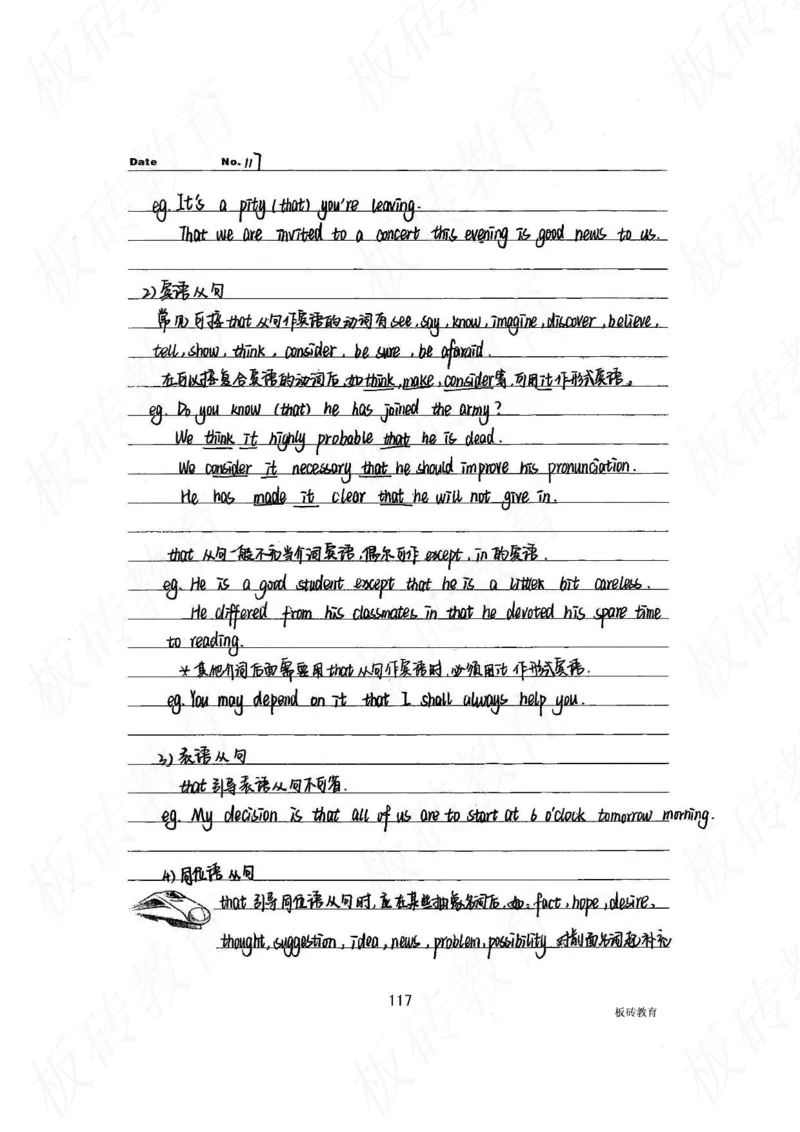 Date No. 117
eg. It's a pity (that) you're leaving.
That we are invited to a concert this evening is good news to us.
2) 宾语从句
常见可接that从句作宾语的动词有see, say, know, imagine, discover, believe,
tell, show, think, consider, be sure, be afaraid.
在可以接复合宾语的动词后,如think, make, consider等,可用it作形式宾语。
eg. Do you know (that) he has joined the army?
We think it highly probable that he is dead.
We consider it necessary that he should improve his pronunciation.
He has made it clear that he will not give in.
that 从句一般不充当介词宾语,偶尔可作 except, in 的宾语.
eg. He is a good student except that he is a litter bit careless.
He differed from his classmates in that he devoted his spare time
to reading.
* 其他介词后面需要用that从句作宾语时,必须用it 作形式宾语.
eg. You may depend on it that I shall always help you.
3) 表语从句
that 引导表语从句不可省.
eg. My decision is that all of us are to start at 6 o'clock tomorrow morning.
4) 同位语从句
that 引导同位语从句时,应在某些抽象名词后,如: fact, hope, desire,
thought, suggestion, idea, news, problem, possibility 对前面名词起补充
117
板砖教育